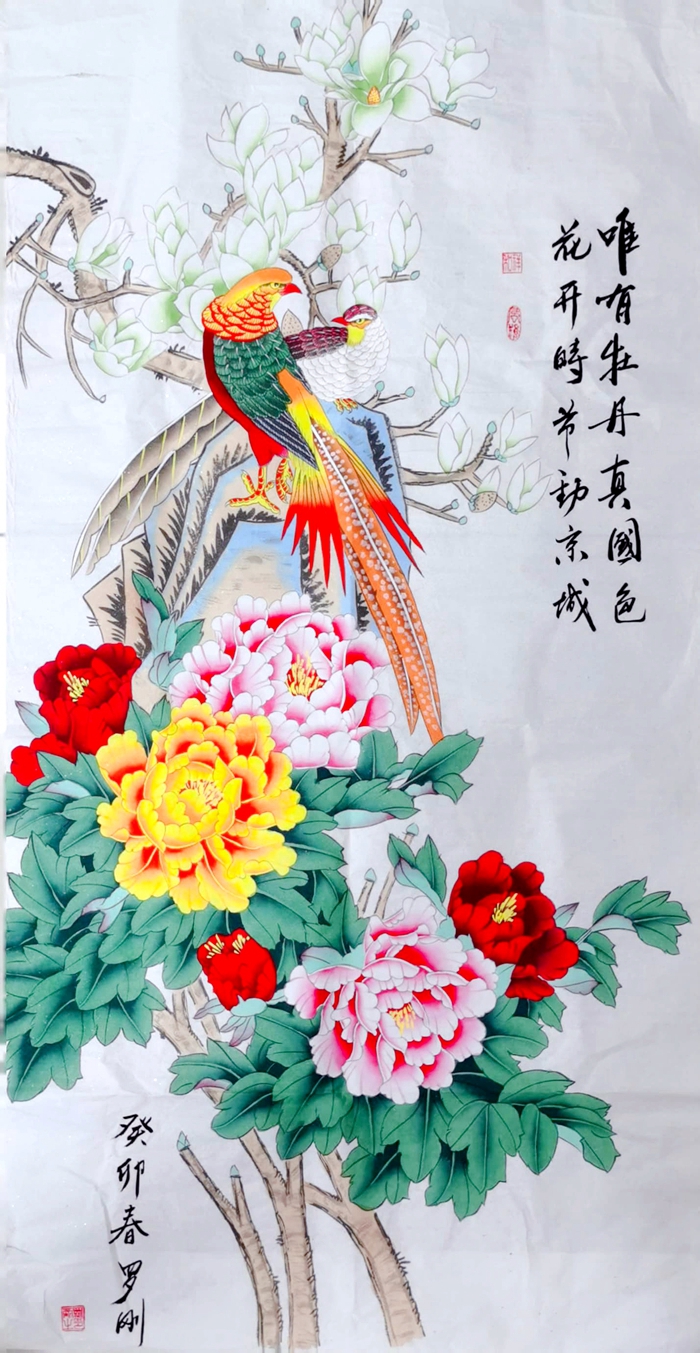 唯有牡丹真國色
花开時节動京城
癸卯春罗刚